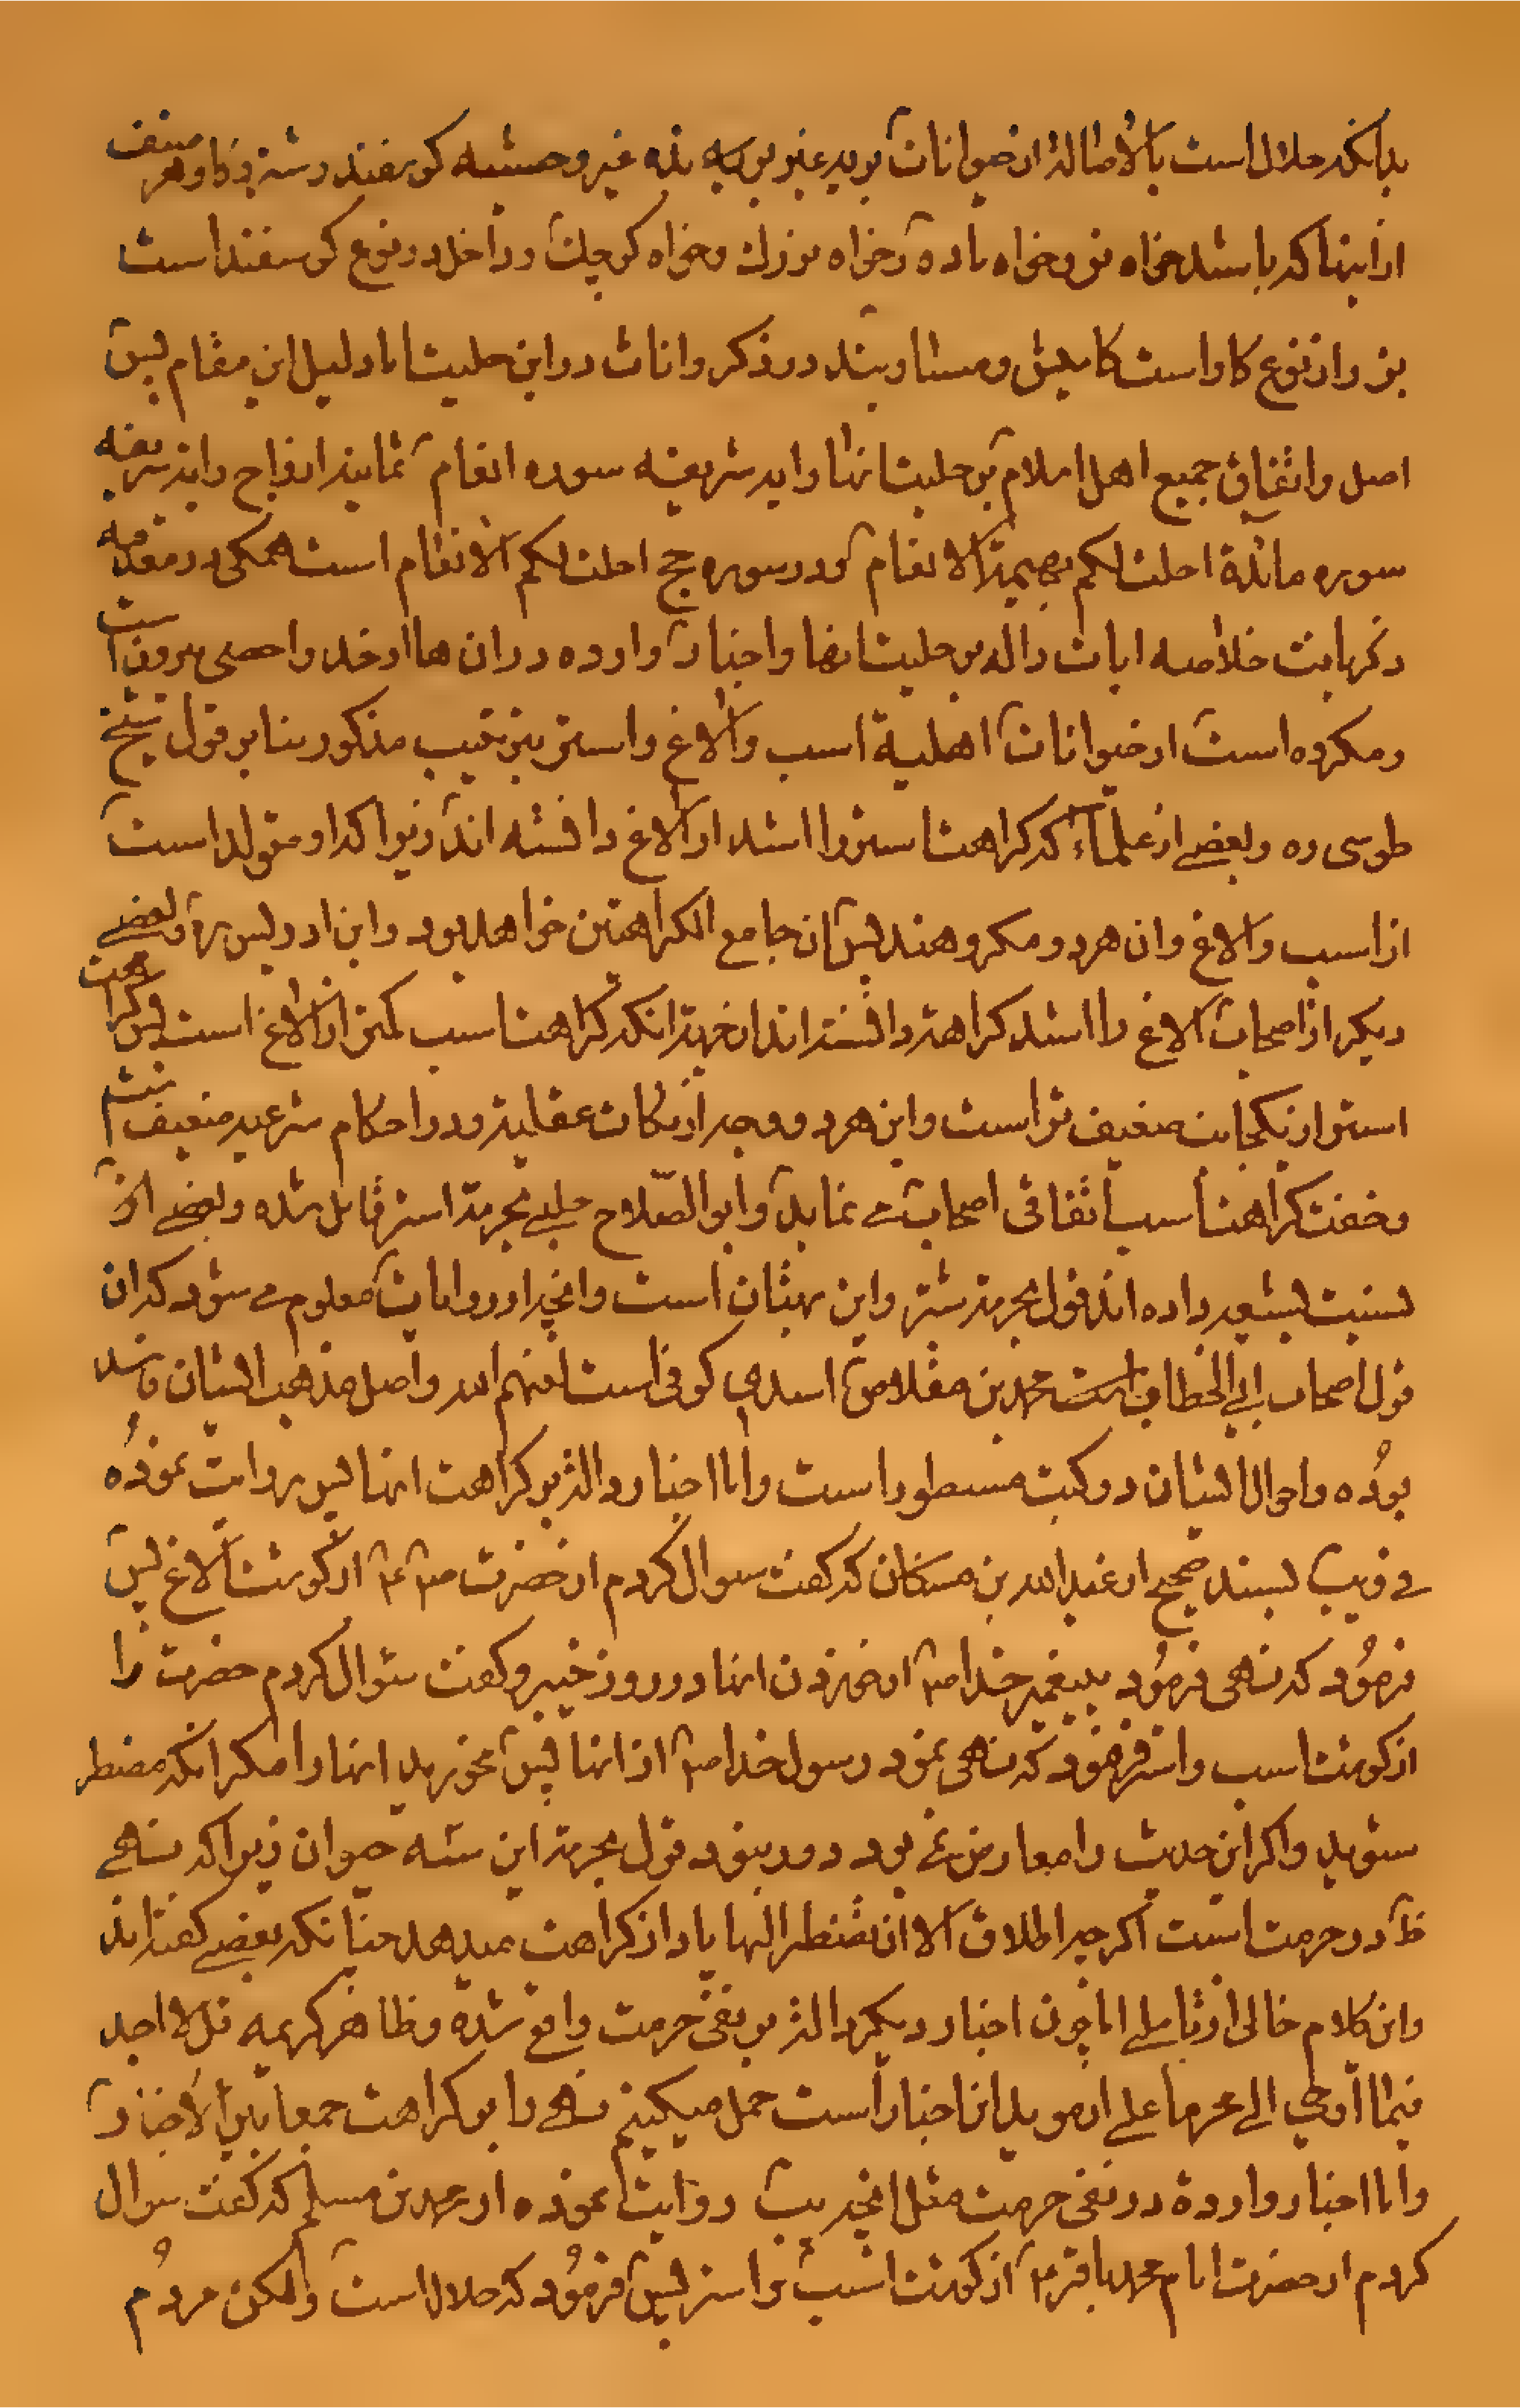 بدانکه حلال است بالاصاله از حیوانات بریه غیر وحشیه کوسفند و شتر و کاو هر صنف
از اینها که باشد خواه نر و خواه ماده و خواه بزرك و خواه کوچك و داخل در نوع کوسفند است
بز و از نوع کاو است کامیش و مساویند در ذکر و اناث در این حلیت اما دلیل این مقام پس
اصل و اتفاق جمیع اهل اسلام بر حلیت انها و ایه شریفه سوره انعام ثمانیة ازواج و ایه شریفه
سوره مائدة احلت لکم بهیمة الانعام و در سوره حج احلت لکم الانعام است همکی در مقدمه
ذکر یافت خلاصه ایات داله بر حلیت انها و اخبار وارده در ان ها از حد و احصی بیرون است
و مکروه است از حیوانات اهلیة اسب و الاغ و استر بترتیب مذکور بنا بر قول شیخ
طوسی ره و بعضی از علماء که کراهت استر را اشد از الاغ دانسته اند زیرا که او متولد است
از اسب و الاغ و ان هر دو مکروهند پس ان جامع الکراهتین خواهد بود و ابن ادریس ره و بعضی
دیکر از اصحاب الاغ را اشد کراهة دانسته اند از جهة انکه کراهت اسب کمتر از الاغ است پس کراهت
استر از یکجانب ضعیف تر است و این هر دو وجه از نکات عقلیه و در احکام شرعیه ضعیف است
و خفت کراهت اسب اتفاقی اصحاب می نماید و ابو الصلاح حلبی بحرمة استر قایل شده و بعضی از
نسبت بشیعه داده اند قول بحرمة شتر و این بهتان است و انچه از روایات معلوم می شود که ان
قول اصحاب ابی الخطاب است محمد بن مقلاص اسدی کوفی است لعنهم الله و اصل مذهب ایشان فاسد
بوده و احوال ایشان در کتب مسطور است و اما اخبار داله بر کراهت انها پس روایت نموده
فی یب بسند صحیح از عبد الله بن مسکان که کفت سوال کردم از حضرت ص ع از کوشت الاغ پس
فرمود که نهی فرمود پیغمبر خدا ص از خوردن انها در روز خیبر و کفت سئوال کردم حضرت را
از کوشت اسب و استر فرمود که نهی نمود رسول خدا ص از انها پس مخورید انها را مکر انکه مضطر
شوید و اکر این حدیث را معارض نمی بود دور نبود قول بحرمة این سه حیوان زیرا که نهی
ظ در حرمت است اکرچه اطلاق الا ان تضطر الیها یاد از کراهت میدهد چنانکه بعضی کفته اند
و این کلام خالی از تاملی اما چون اخبار دیکر داله بر نفی حرمت واقع شده و ظاهر کریمه قل لا اجد
فیما اوحی الی محرما علی از موید ان اخبار است حمل میکنیم نهی را بر کراهت جمعا بین الاخبار
و اما اخبار وارده در نفی حرمت مثل انحدیث روایت نموده از محمد بن مسلم که کفت سوال
کردم از حضرت امام محمد باقر ع از کوشت اسب و استر پس فرمود که حلال است ولکن مردم